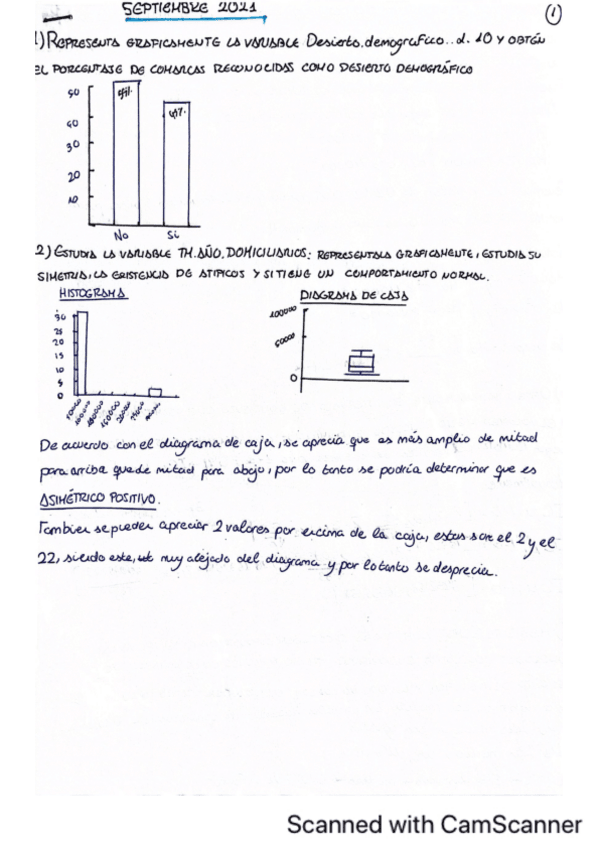 SEPTIEMBRE 2021
1
1) REPRESENTA GRAFICAMENTE LA VARIABLE Desierto.demografico..d. 10 Y OBTÉN
EL PORCENTAJE DE COMARCAS RECONOCIDAS COMO DESIERTO DEMOGRÁFICO
50
40
30
20
10
No
Si
2) ESTUDIA LA VARIABLE TM.AÑO.DOMICILIARIOS: REPRESENTALA GRAFICAMENTE, ESTUDIA SU
SIMETRIA, LA EXISTENCIA DE ATIPICOS Y SI TIENE UN COMPORTAMIENTO NORMAL.
HISTOGRAMA
DIAGRAMA DE CAJA
30
25
20
15
10
5
0
100000
50000
0
De acuerdo con el diagrama de caja, se aprecia que es más amplio de mitad
para arriba que de mitad para abajo, por lo tanto se podría determinar que es
ASIMÉTRICO POSITIVO.
Tambien se pueden apreciar 2 valores por encima de la caja, estos son el 2 y el
22, siendo este, muy alejado del diagrama y por lo tanto se desprecia.
Scanned with CamScanner